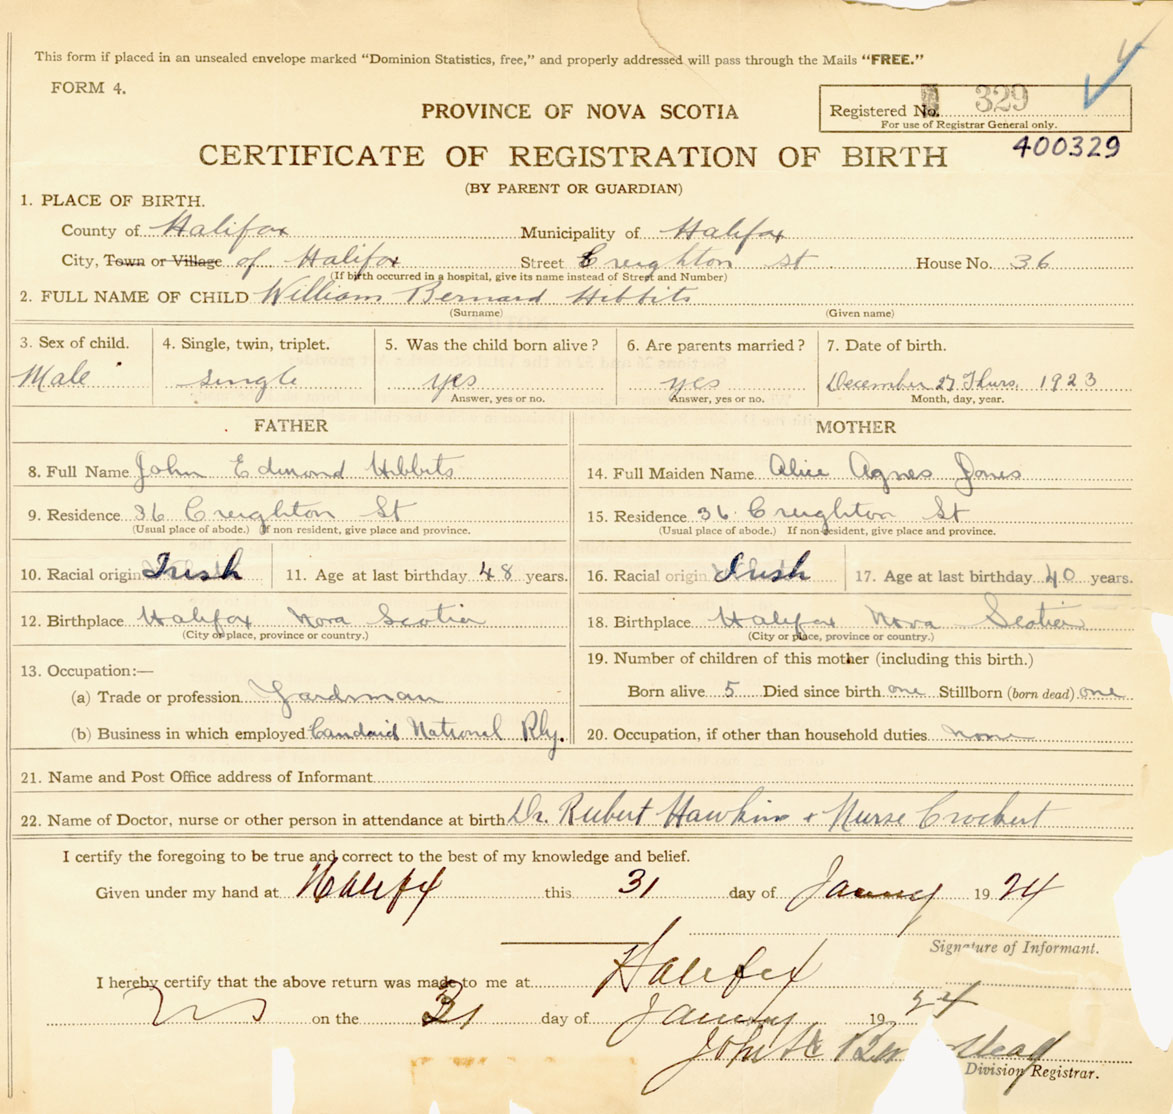 This form if placed in an unsealed envelope marked "Dominion Statistics, free," and properly addressed will pass through the Mails "FREE."
FORM 4.
PROVINCE OF NOVA SCOTIA
Registered No. 329
For use of Registrar General only.
400329
CERTIFICATE OF REGISTRATION OF BIRTH
(BY PARENT OR GUARDIAN)
1. PLACE OF BIRTH.
County of Halifax Municipality of Halifax
City, Town or Village of Halifax Street Creighton St House No. 36
(If birth occurred in a hospital, give its name instead of Street and Number)
2. FULL NAME OF CHILD William Bernard Hibbits
(Surname) (Given name)
3. Sex of child. 4. Single, twin, triplet. 5. Was the child born alive? 6. Are parents married? 7. Date of birth.
Male single yes yes December 27 Thurs. 1923
Answer, yes or no. Answer, yes or no. Month, day, year.
FATHER MOTHER
8. Full Name John Edmond Hibbits 14. Full Maiden Name Alice Agnes Jones
9. Residence 36 Creighton St 15. Residence 36 Creighton St
(Usual place of abode.) If non resident, give place and province. (Usual place of abode.) If non-resident, give place and province.
10. Racial origin Irish 11. Age at last birthday 48 years. 16. Racial origin Irish 17. Age at last birthday 40 years.
12. Birthplace Halifax Nova Scotia 18. Birthplace Halifax Nova Scotia
(City or place, province or country.) (City or place, province or country.)
13. Occupation:— 19. Number of children of this mother (including this birth.)
(a) Trade or profession Yardsman Born alive 5 Died since birth one Stillborn (born dead) one
(b) Business in which employed Candaid National Rly. 20. Occupation, if other than household duties none
21. Name and Post Office address of Informant
22. Name of Doctor, nurse or other person in attendance at birth Dr. Rubert Hawkins + Nurse Crockert
I certify the foregoing to be true and correct to the best of my knowledge and belief.
Given under my hand at Halifax this 31 day of January 1924
Signature of Informant.
I hereby certify that the above return was made to me at Halifax
NS on the 31 day of January 1924
John
Division Registrar.